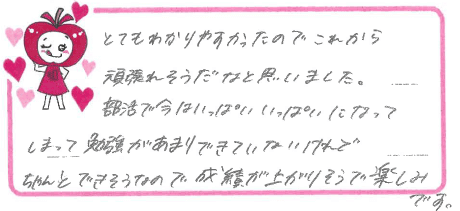 とてもわかりやすかったのでこれから
頑張れそうだなと思いました。
部活で今はいっぱいいっぱいになって
しまって勉強があまりできていないけれど
ちゃんとできそうなので成績が上がりそうで楽しみ
です。